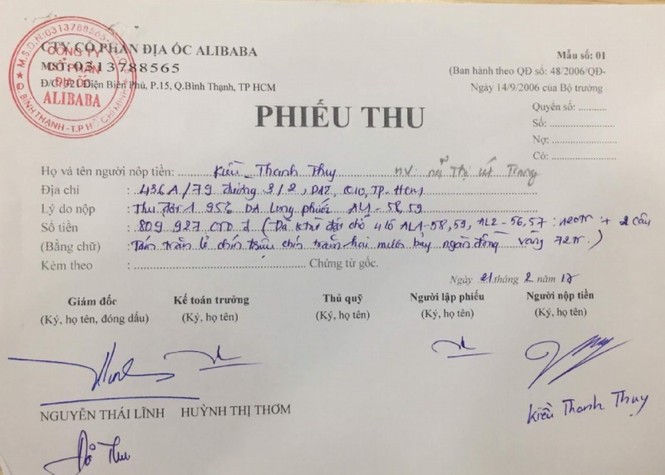 CTY CỔ PHẦN ĐỊA ỐC ALIBABA
MST: 0313788565
Đ/C: 321 Điện Biên Phủ, P.15, Q.Bình Thạnh, TP HCM
M.S.D.N:0313788565
CÔNG TY
CỔ PHẦN
ĐỊA ỐC
ALIBABA
Q.BÌNH THẠNH-T.P HỒ CHÍ MINH
Mẫu số: 01
(Ban hành theo QĐ số: 48/2006/QĐ-
Ngày 14/9/2006 của Bộ trưởng
PHIẾU THU
Quyển số:
Số:
Nợ:
Có:
Họ và tên người nộp tiền: Kiều Thanh Thuy NV. Thị út Trang
Địa chỉ : 436A/79 đường 3/2, P12, Q10, TP-HCM
Lý do nộp : Thu đợt 1 95% DA Long phước AL1-58,59
Số tiền : 809 927 000 đ (Đã khấu đặt chỗ 4 lô AL1-58,59, AL2-56,57: 120tr + 2 cây
(Bằng chữ) Tám trăm lẻ chín triệu chín trăm hai mươi bảy ngàn đồng vàng 72tr.)
Kèm theo : Chứng từ gốc.
Ngày 21 tháng 2 năm 17
Giám đốc Kế toán trưởng Thủ quỹ Người lập phiếu Người nộp tiền
(Ký, họ tên, đóng dấu) (Ký, họ tên) (Ký, họ tên) (Ký, họ tên) (Ký, họ tên)
NGUYỄN THÁI LĨNH HUỲNH THỊ THƠM
Kiều Thanh Thuy
Đỗ Thu